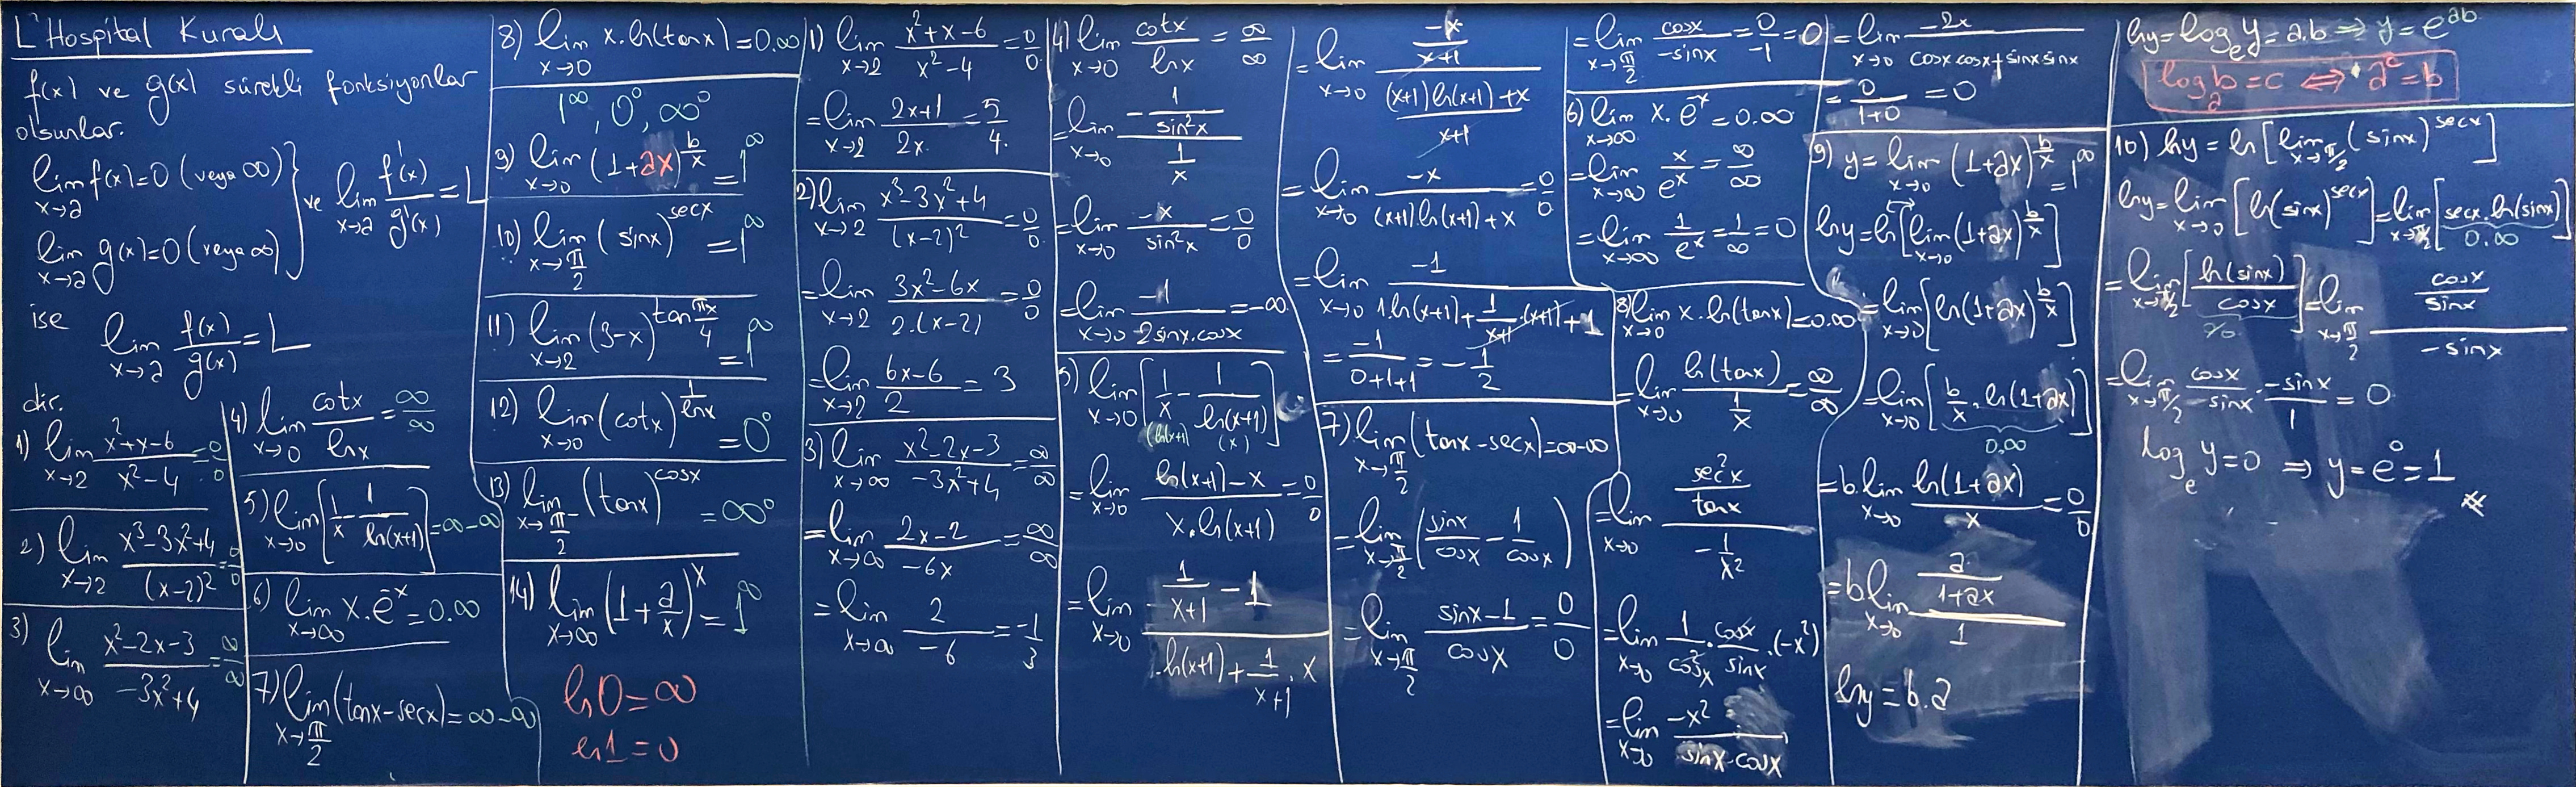 L'Hospital Kuralı
f(x) ve g(x) sürekli fonksiyonlar
olsunlar.
lim_{x→a} f(x)=0 (veya ∞)
lim_{x→a} g(x)=0 (veya ∞) } ve lim_{x→a} f'(x)/g'(x) = L
ise
lim_{x→a} f(x)/g(x) = L
dir.
1) lim_{x→2} (x²+x-6)/(x²-4) = 0/0
2) lim_{x→2} (x³-3x²+4)/(x-2)² = 0/0
3) lim_{x→∞} (x²-2x-3)/(-3x²+4) = ∞/∞
4) lim_{x→0} cotx/lnx = ∞/∞
5) lim_{x→0} [1/x - 1/ln(x+1)] = ∞-∞
6) lim_{x→∞} x.e^{-x} = 0.∞
7) lim_{x→π/2} (tanx-secx) = ∞-∞
8) lim_{x→0} x.ln(tanx) = 0.∞
1^∞, 0^0, ∞^0
9) lim_{x→0} (1+ax)^{b/x} = 1^∞
10) lim_{x→π/2} (sinx)^{secx} = 1^∞
11) lim_{x→2} (3-x)^{tan πx/4} = 1^∞
12) lim_{x→0} (cotx)^{1/lnx} = 0^0
13) lim_{x→π/2} (tanx)^{cosx} = ∞^0
14) lim_{x→∞} (1+a/x)^x = 1^∞
ln0=∞
ln1=0
1) lim_{x→2} (x²+x-6)/(x²-4) = 0/0
= lim_{x→2} (2x+1)/2x = 5/4.
2) lim_{x→2} (x³-3x²+4)/(x-2)² = 0/0
= lim_{x→2} (3x²-6x)/(2.(x-2)) = 0/0
= lim_{x→2} (6x-6)/2 = 3
3) lim_{x→∞} (x²-2x-3)/(-3x²+4) = ∞/∞
= lim_{x→∞} (2x-2)/(-6x) = ∞/∞
= lim_{x→∞} 2/(-6) = -1/3
4) lim_{x→0} cotx/lnx = ∞/∞
= lim_{x→0} (-1/sin²x)/(1/x)
= lim_{x→0} -x/sin²x = 0/0
= lim_{x→0} -1/(2sinx.cosx) = -∞
5) lim_{x→0} [1/x - 1/ln(x+1)]
(ln(x+1)) (x)
= lim_{x→0} (ln(x+1)-x)/(x.ln(x+1)) = 0/0
= lim_{x→0} (1/(x+1) - 1)/(ln(x+1) + 1/(x+1) . x)
= lim_{x→0} (-x/(x+1))/(((x+1)ln(x+1)+x)/(x+1))
= lim_{x→0} -x/((x+1)ln(x+1)+x) = 0/0
= lim_{x→0} -1/(1.ln(x+1) + 1/(x+1).(x+1)+1)
= -1/(0+1+1) = -1/2
7) lim_{x→π/2} (tanx-secx) = ∞-∞
= lim_{x→π/2} (sinx/cosx - 1/cosx)
= lim_{x→π/2} (sinx-1)/cosx = 0/0
= lim_{x→π/2} cosx/(-sinx) = 0/-1 = 0
6) lim_{x→∞} x.e^{-x} = 0.∞
= lim_{x→∞} x/e^x = ∞/∞
= lim_{x→∞} 1/e^x = 1/∞ = 0
8) lim_{x→0} x.ln(tanx) = 0.∞
= lim_{x→0} ln(tanx)/(1/x) = ∞/∞
= lim_{x→0} (sec²x/tanx)/(-1/x²)
= lim_{x→0} 1/cos²x . cosx/sinx .(-x²)
= lim_{x→0} -x²/(sinx.cosx)
= lim_{x→0} -2x/(cosx cosx+sinx sinx)
= 0/(1+0) = 0
9) y = lim_{x→0} (1+ax)^{b/x} = 1^∞
lny = ln[lim_{x→0} (1+ax)^{b/x}]
= lim_{x→0} [ln(1+ax)^{b/x}]
= lim_{x→0} [b/x . ln(1+ax)]
0.∞
= b.lim_{x→0} ln(1+ax)/x = 0/0
= b.lim_{x→0} (a/(1+ax))/1
lny = b.a
lny = log_e y = a.b ⇒ y = e^{ab}
log_a b = c ⇔ a^c = b
10) lny = ln[lim_{x→π/2} (sinx)^{secx}]
lny = lim_{x→0} [ln(sinx)^{secx}] = lim_{x→π/2} [secx.ln(sinx)]
0.∞
= lim_{x→π/2} [ln(sinx)/cosx] = lim_{x→π/2} (cosx/sinx)/(-sinx)
0/0
= lim_{x→π/2} cosx/-sinx . -sinx/1 = 0
log_e y = 0 ⇒ y = e^0 = 1